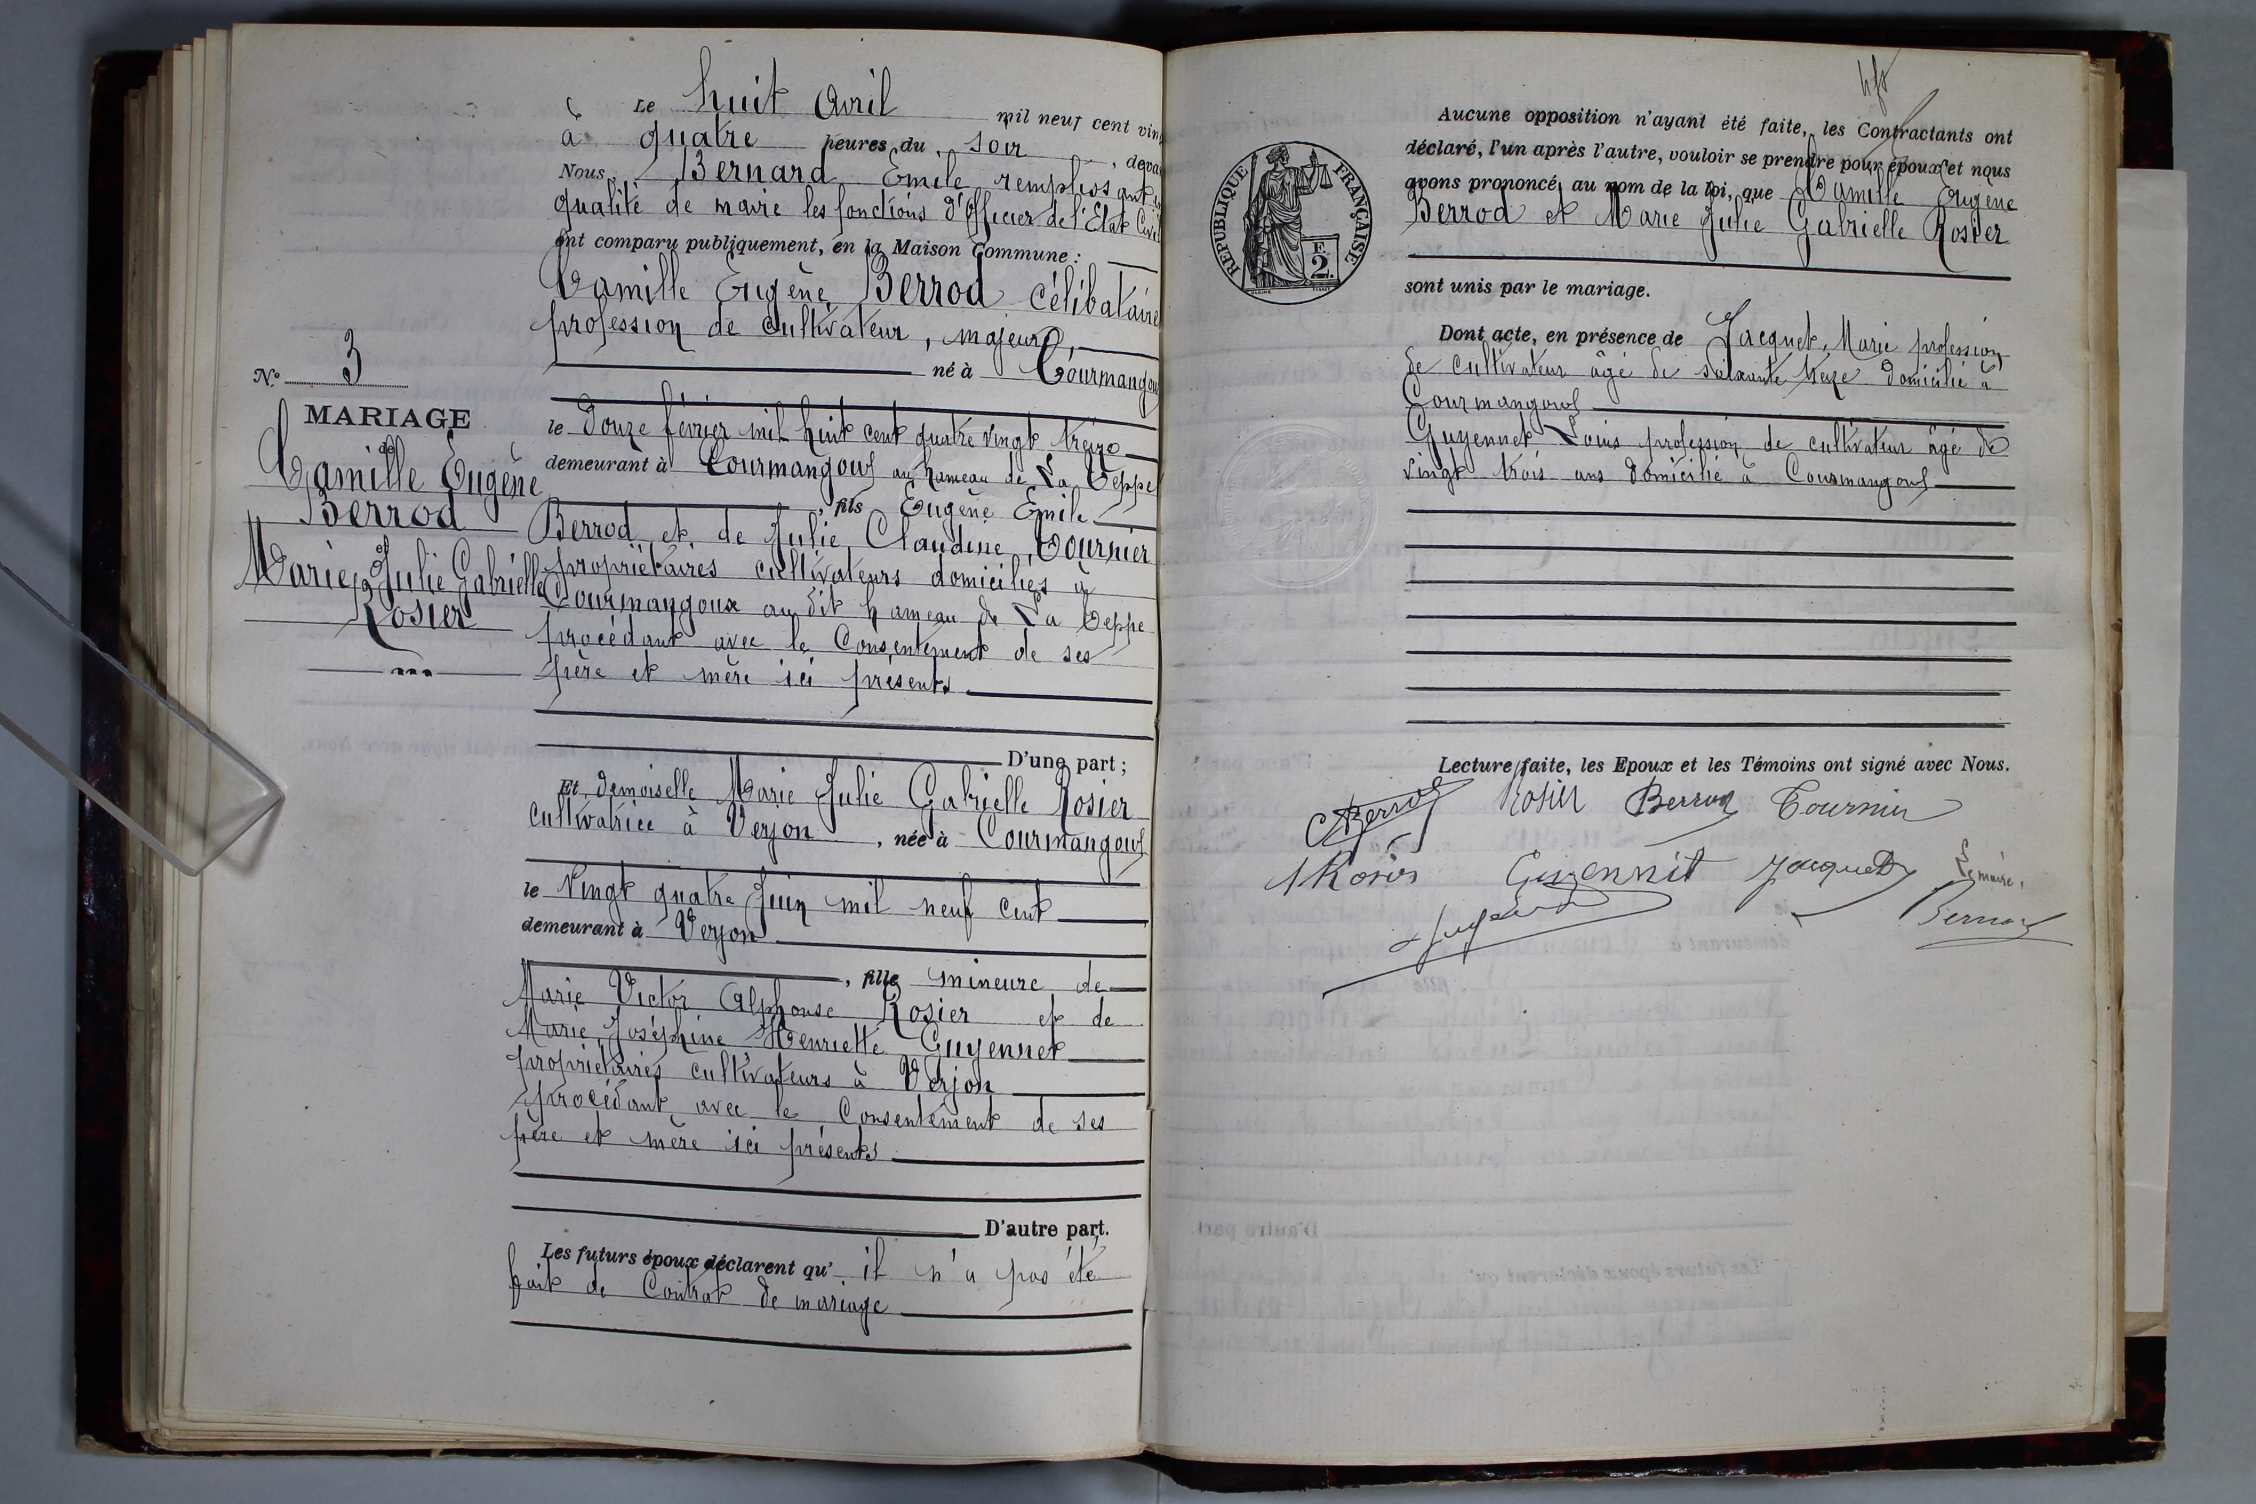 Le huit Avril mil neuf cent vin
à quatre heures du soir, deva
Nous, Bernard Emile remplissant en
qualité de maire les fonctions d'Officier de l'Etat Civil
ont comparu publiquement, en la Maison Commune :
Camille Eugène Berrod célibataire
profession de cultivateur, majeur,
né à Courmangoux
le douze février mil huit cent quatre vingt treize
demeurant à Courmangoux au hameau de La Teppe
, fils Eugène Emile
Berrod et de Julie Claudine Tournier
propriétaires cultivateurs domiciliés à
Courmangoux au dit hameau de La Teppe
procédant avec le Consentement de ses
père et mère ici présents
D'une part ;
Et demoiselle Marie Julie Gabrielle Rosier
cultivatrice à Verjon, née à Courmangoux
le vingt quatre Juin mil neuf cent
demeurant à Verjon
, fille mineure de
Marie Victor Alphonse Rosier et de
Marie Joséphine Henriette Guyennet
propriétaires cultivateurs à Verjon
procédant avec le Consentement de ses
père et mère ici présents
D'autre part.
Les futurs époux déclarent qu' il n'a pas été
fait de Contrat de mariage
N.º 3
MARIAGE
de
Camille Eugène
Berrod
et
Marie Julie Gabrielle
Rosier
RÉPUBLIQUE FRANÇAISE
F.
2.
Aucune opposition n'ayant été faite, les Contractants ont
déclaré, l'un après l'autre, vouloir se prendre pour époux et nous
avons prononcé, au nom de la loi, que Camille Eugène
Berrod et Marie Julie Gabrielle Rosier
sont unis par le mariage.
Dont acte, en présence de Jacquet, Marie profession
de cultivateur âgé de soixante treize domicilié à
Courmangoux
Guyennet Louis profession de cultivateur âgé de
vingt trois ans domicilié à Courmangoux
Lecture faite, les Epoux et les Témoins ont signé avec Nous.
CBerrod Rosier Berrod Tournier
Rosier Guyennet Jacquet Le maire,
Bernard